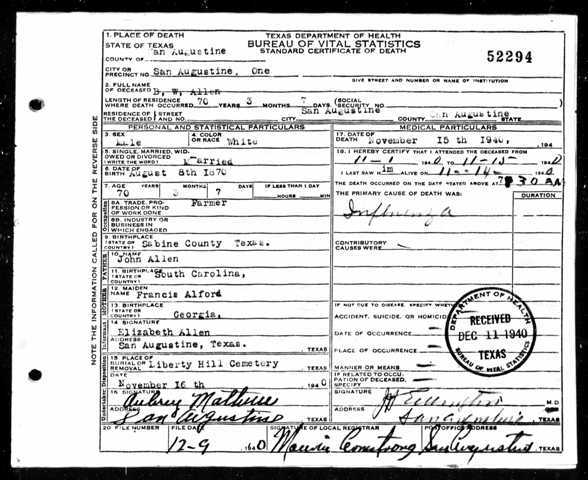 1. PLACE OF DEATH
STATE OF TEXAS
COUNTY OF San Augustine
TEXAS DEPARTMENT OF HEALTH
BUREAU OF VITAL STATISTICS
STANDARD CERTIFICATE OF DEATH
52294
CITY OR PRECINCT NO. San Augustine, One
GIVE STREET AND NUMBER OR NAME OF INSTITUTION
2. FULL NAME OF DECEASED B. W. Allen
LENGTH OF RESIDENCE WHERE DEATH OCCURRED 70 YEARS 3 MONTHS 7 DAYS (SOCIAL SECURITY NO.
RESIDENCE OF THE DECEASED STREET AND NO. San Augustine COUNTY AND STATE San Augustine
PERSONAL AND STATISTICAL PARTICULARS
3. SEX Male
4. COLOR OR RACE White
5. SINGLE, MARRIED, WIDOWED OR DIVORCED (WRITE THE WORD) Married
6. DATE OF BIRTH August 8th 1870
7. AGE YEARS MONTHS DAYS IF LESS THAN 1 DAY
70 3 7 HOURS MIN
8A TRADE, PROFESSION OR KIND OF WORK DONE Farmer
8B. INDUSTRY OR BUSINESS IN WHICH ENGAGED
9. BIRTHPLACE (STATE OR COUNTRY) Sabine County Texas.
10. NAME John Allen
11. BIRTHPLACE (STATE OR COUNTRY) South Carolina,
12. MAIDEN NAME Francis Alford
13. BIRTHPLACE (STATE OR COUNTRY) Georgia,
14. SIGNATURE Elizabeth Allen
ADDRESS San Augustine, Texas. TEXAS
15. PLACE OF BURIAL OR REMOVAL Liberty Hill Cemetery TEXAS
DATE November 16th 1940
SIGNATURE Aubrey
ADDRESS San Augustine TEXAS
MEDICAL PARTICULARS
17. DATE OF DEATH November 15th 1940, 194
18. I HEREBY CERTIFY THAT I ATTENDED THE DECEASED FROM
11-1 1940 TO 11-15 1940
I LAST SAW him ALIVE ON 11-14 1940
THE DEATH OCCURRED ON THE DATE STATED ABOVE AT 7:30 A M.
THE PRIMARY CAUSE OF DEATH WAS: DURATION
Influenza
CONTRIBUTORY CAUSES WERE:
IF NOT DUE TO DISEASE, SPECIFY WHETHER
ACCIDENT, SUICIDE, OR HOMICIDE
DATE OF OCCURRENCE
PLACE OF OCCURRENCE
MANNER OR MEANS
IF RELATED TO OCCUPATION OF DECEASED, SPECIFY
SIGNATURE M.D.
ADDRESS San Augustine TEXAS
DEPARTMENT OF HEALTH
RECEIVED
DEC 11 1940
TEXAS
BUREAU OF VITAL STATISTICS
20 FILE NUMBER
FILE DATE 12-9 1940
SIGNATURE OF LOCAL REGISTRAR Armstrong
POSTOFFICE ADDRESS San Augustine TEXAS
NOTE THE INFORMATION CALLED FOR ON THE REVERSE SIDE
Occupation
FATHER
MOTHER
Informant
Undertaker